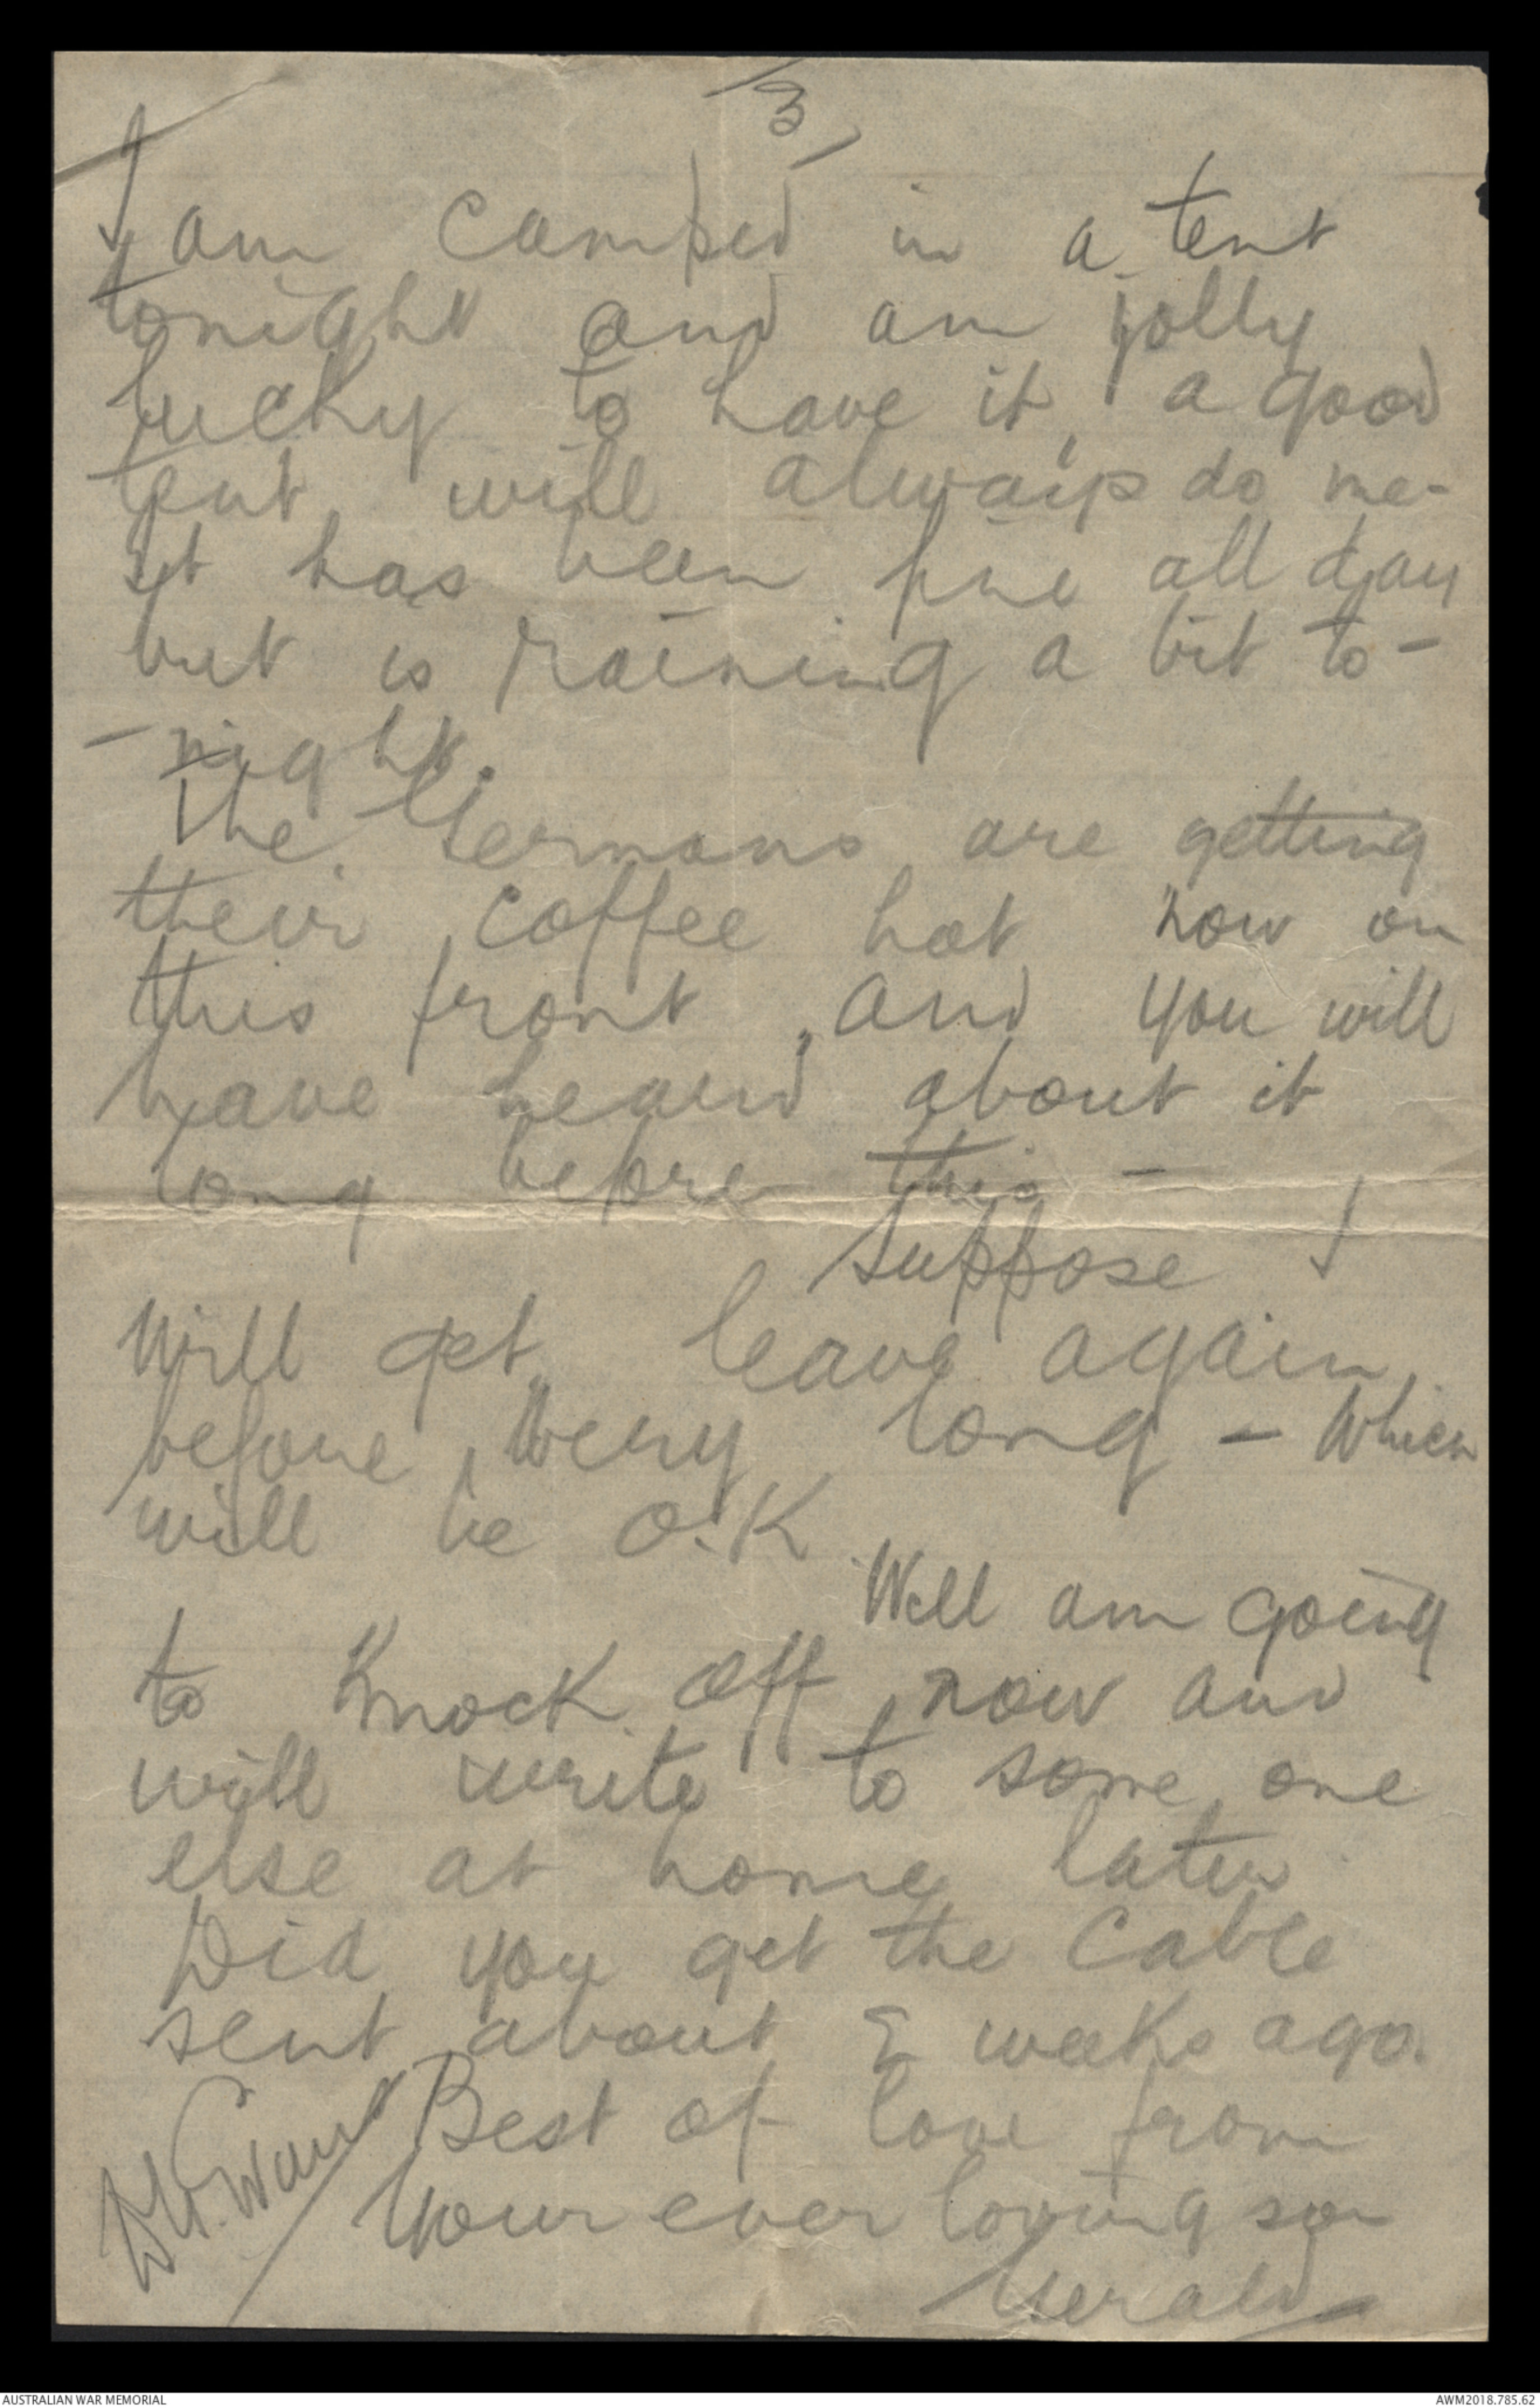 3
I am camped in a tent
tonight and am jolly
lucky to have it, a good
tent will always do me -
it has been fine all day
but is raining a bit to -
- night.
The Germans are getting
their coffee hot now on
this front, and you will
have heard about it
long before this -
Suppose I
will get leave again
before very long - which
will be O.K
Well am going
to knock off now and
will write to some one
else at home later
Did you get the cable
sent about 2 weeks ago.
Best of love from
Your ever loving son
Gerald
AUSTRALIAN WAR MEMORIAL
AWM2018.785.62